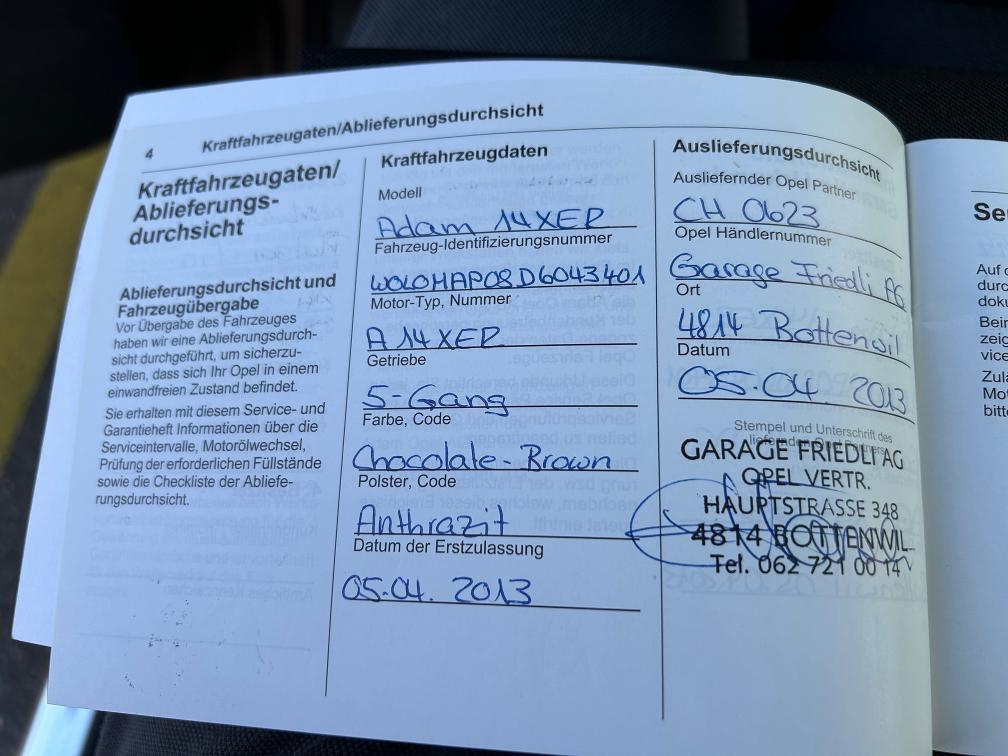 4
Kraftfahrzeugaten/Ablieferungsdurchsicht
Kraftfahrzeugaten/
Ablieferungs-
durchsicht
Ablieferungsdurchsicht und
Fahrzeugübergabe
Vor Übergabe des Fahrzeuges
haben wir eine Ablieferungsdurch-
sicht durchgeführt, um sicherzu-
stellen, dass sich Ihr Opel in einem
einwandfreien Zustand befindet.
Sie erhalten mit diesem Service- und
Garantieheft Informationen über die
Serviceintervalle, Motorölwechsel,
Prüfung der erforderlichen Füllstände
sowie die Checkliste der Abliefe-
rungsdurchsicht.
Kraftfahrzeugdaten
Modell
Adam 14XER
Fahrzeug-Identifizierungsnummer
W0L0MAP08D6043401
Motor-Typ, Nummer
A 14 XER
Getriebe
5-Gang
Farbe, Code
Chocolate-Brown
Polster, Code
Anthrazit
Datum der Erstzulassung
05.04. 2013
Auslieferungsdurchsicht
Ausliefernder Opel Partner
CH 0623
Opel Händlernummer
Garage Friedli AG
Ort
4814 Bottenwil
Datum
05.04 2013
Stempel und Unterschrift des
GARAGE FRIEDLI AG
OPEL VERTR.
HAUPTSTRASSE 348
4814 BOTTENWIL
Tel. 062 721 00 14
Se
Auf
durc
doku
Bein
zeig
vice
Zula
Mot
bitte